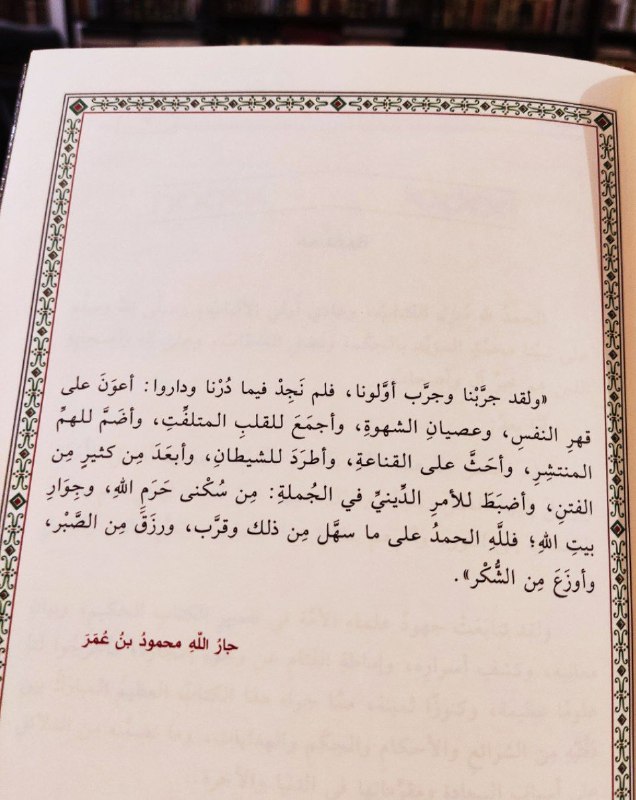 «ولقد جرَّبْنا وجرَّب أوَّلونا، فلم نَجِدْ فيما دُرْنا وداروا: أعوَنَ على
قهرِ النفسِ، وعصيانِ الشهوةِ، وأجمَعَ للقلبِ المتلفِّتِ، وأضَمَّ للهمِّ
المنتشِرِ، وأحَثَّ على القناعةِ، وأطرَدَ للشيطانِ، وأبعَدَ مِن كثيرٍ مِن
الفتنِ، وأضبَطَ للأمرِ الدِّينيِّ في الجُملةِ: مِن سُكْنى حَرَمِ اللهِ، وجِوَارِ
بيتِ اللهِ؛ فللَّهِ الحمدُ على ما سهَّل مِن ذلك وقرَّب، ورزَقَ مِن الصَّبْر،
وأوزَعَ مِن الشُّكْر».
جارُ اللّهِ محمودُ بنُ عُمَرَ